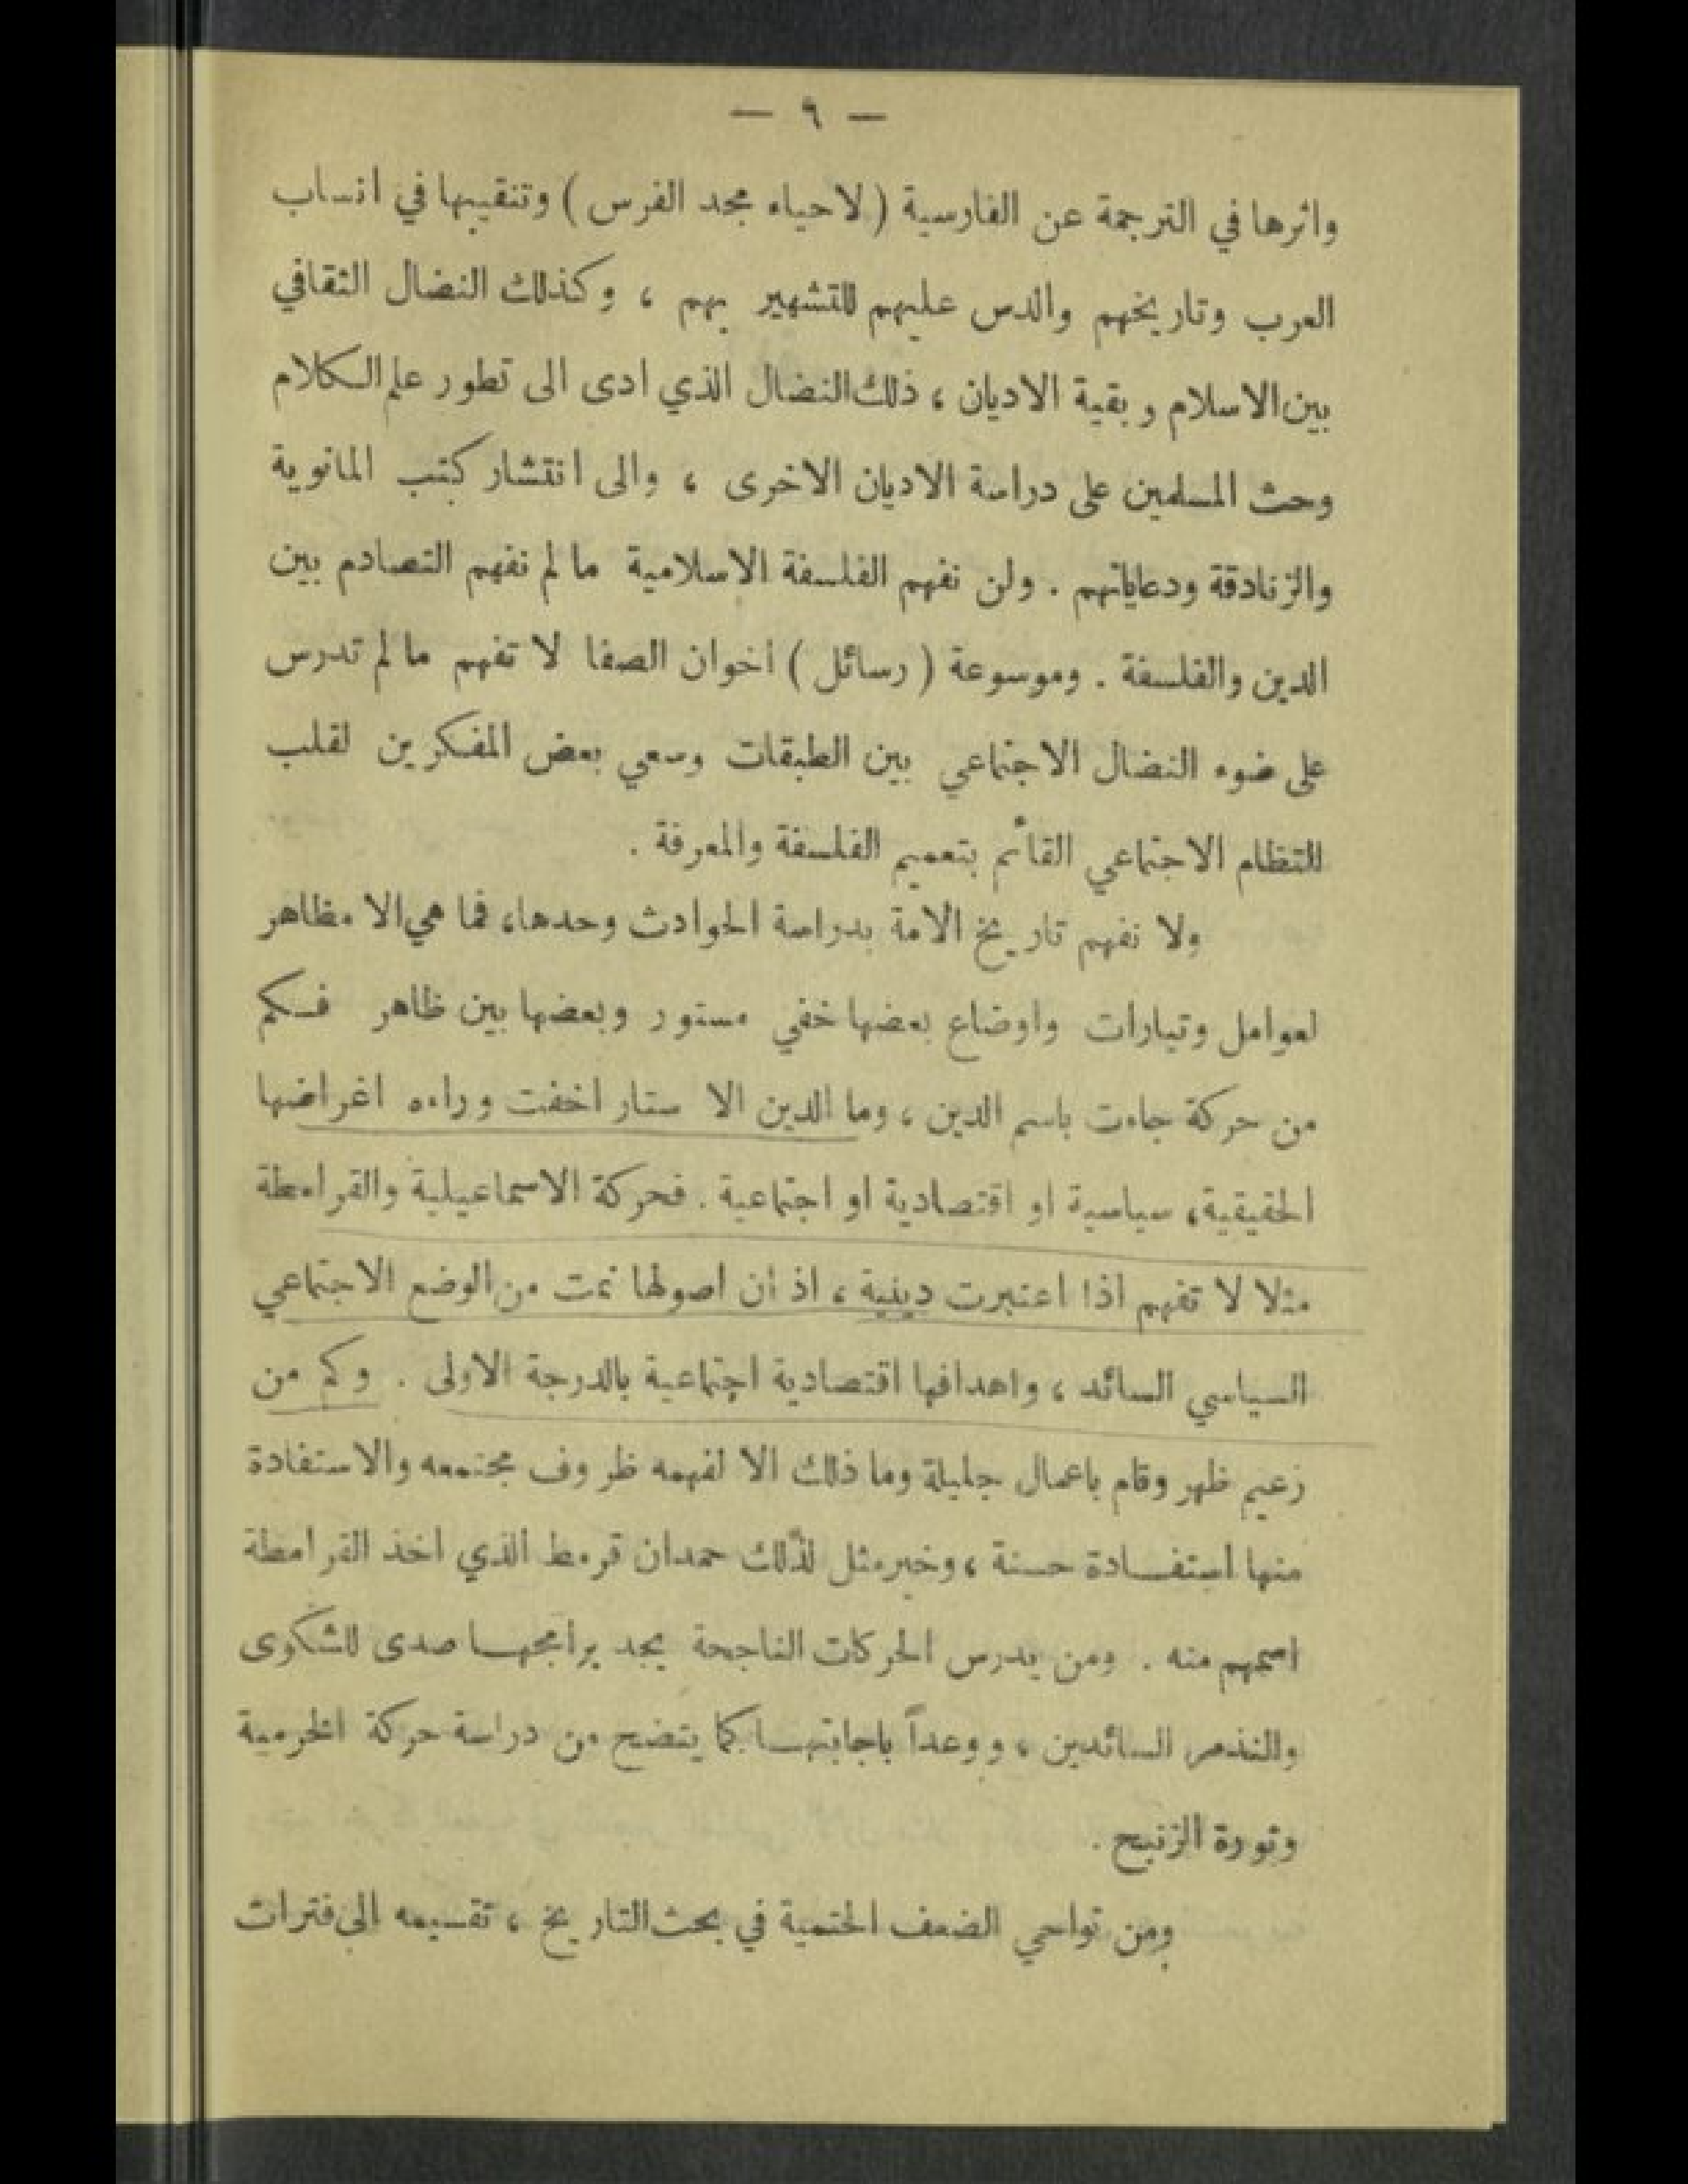 — ٦ —
واثرها في الترجمة عن الفارسية ( لاحياء مجد الفرس ) وتنقيبها في انساب
العرب وتاريخهم والدس عليهم للتشهير بهم ، وكذلك النضال الثقافي
بين الاسلام وبقية الاديان ، ذلك النضال الذي ادى الى تطور علم الكلام
وحث المسلمين على دراسة الاديان الاخرى ، والى انتشار كتب المانوية
والزنادقة ودعاياتهم . ولن نفهم الفلسفة الاسلامية مالم نفهم التصادم بين
الدين والفلسفة . وموسوعة ( رسائل ) اخوان الصفا لا تفهم مالم تدرس
على ضوء النضال الاجتماعي بين الطبقات وسعي بعض المفكرين لقلب
للنظام الاجتماعي القائم بتعميم الفلسفة والمعرفة .
ولا نفهم تاريخ الامة بدراسة الحوادث وحدها، فما هي الا مظاهر
لعوامل وتيارات واوضاع بعضها خفي مستور وبعضها بين ظاهر فكم
من حركة جاءت باسم الدين ، وما الدين الا ستار اخفت وراءه اغراضها
الحقيقية، سياسية او اقتصادية او اجتماعية . فحركة الاسماعيلية والقرامطة
مثلا لا تفهم اذا اعتبرت دينية ، اذ ان اصولها نمت من الوضع الاجتماعي
السياسي السائد ، واهدافها اقتصادية اجتماعية بالدرجة الاولى . وكم من
زعيم ظهر وقام باعمال جليلة وما ذلك الا لفهمه ظروف مجتمعه والاستفادة
منها استفادة حسنة ، وخير مثل لذلك حمدان قرمط الذي اخذ القرامطة
اسمهم منه . ومن يدرس الحركات الناجحة يجد برامجها صدى للشكوى
والتذمر السائدين ، ووعداً باجابتها كما يتضح من دراسة حركة الخرمية
وثورة الزنج .
ومن نواحي الضعف الحتمية في بحث التاريخ ، تقسيمه الى فترات